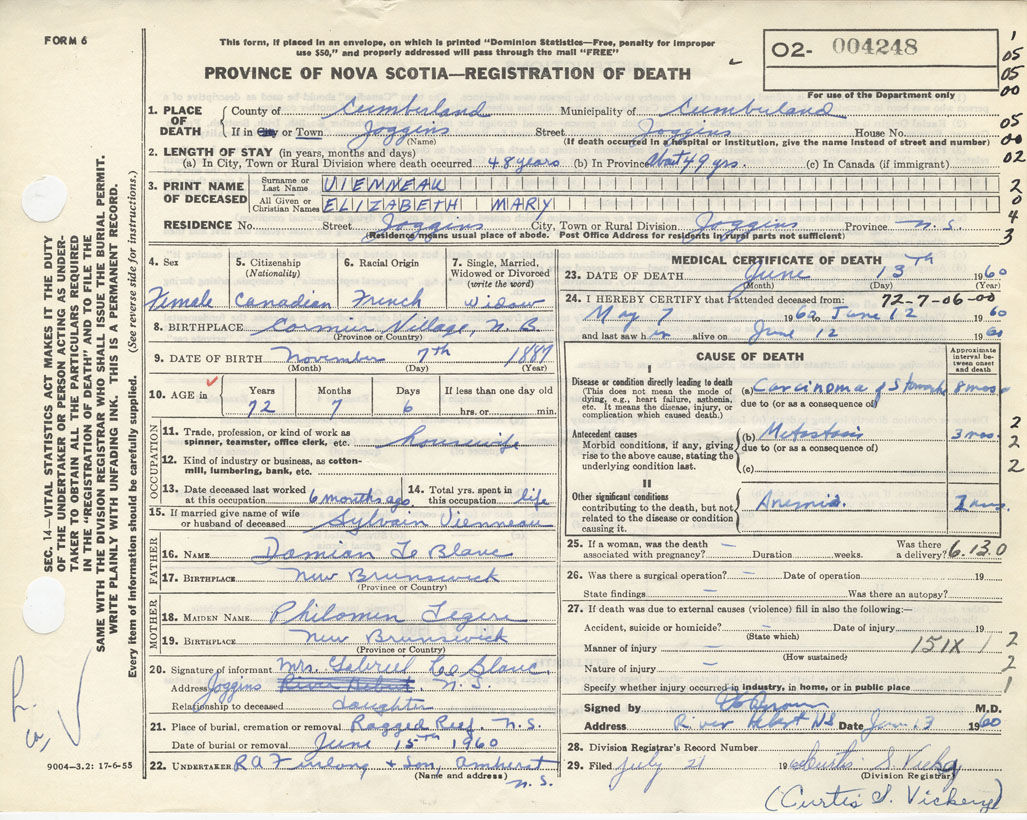 FORM 6
This form, if placed in an envelope, on which is printed "Dominion Statistics—Free, penalty for improper
use $50," and properly addressed will pass through the mail "FREE"
PROVINCE OF NOVA SCOTIA—REGISTRATION OF DEATH
02- 004248
For use of the Department only
1
05
05
00
05
00
02
2
0
4
3
1. PLACE OF DEATH
County of Cumberland Municipality of Cumberland
If in City or Town Joggins Street Joggins House No.
(Name) (If death occurred in a hospital or institution, give the name instead of street and number)
2. LENGTH OF STAY (in years, months and days)
(a) In City, Town or Rural Division where death occurred 48 years (b) In Province About 49 yrs. (c) In Canada (if immigrant)
3. PRINT NAME OF DECEASED
Surname or Last Name VIENNEAU
All Given or Christian Names ELIZABETH MARY
RESIDENCE No. Street Joggins City, Town or Rural Division Joggins Province N.S.
(Residence means usual place of abode. Post Office Address for residents in rural parts not sufficient)
4. Sex Female
5. Citizenship (Nationality) Canadian
6. Racial Origin French
7. Single, Married, Widowed or Divorced (write the word) Widow
8. BIRTHPLACE Cormier Village, N.B.
(Province or Country)
9. DATE OF BIRTH November 7th 1887
(Month) (Day) (Year)
10. AGE in Years Months Days If less than one day old
72 7 6 hrs. or min.
OCCUPATION
11. Trade, profession, or kind of work as spinner, teamster, office clerk, etc. housewife
12. Kind of industry or business, as cotton-mill, lumbering, bank, etc.
13. Date deceased last worked at this occupation 6 months ago 14. Total yrs. spent in this occupation life
15. If married give name of wife or husband of deceased Sylvain Vienneau
FATHER
16. NAME Damian Le Blanc
17. BIRTHPLACE New Brunswick
(Province or Country)
MOTHER
18. MAIDEN NAME Philomen Legere
19. BIRTHPLACE New Brunswick
(Province or Country)
20. Signature of informant Mrs. Gabriel Le Blanc
Address Joggins River Hebert N.S.
Relationship to deceased daughter
21. Place of burial, cremation or removal Ragged Reef, N.S.
Date of burial or removal June 15th 1960
22. UNDERTAKER R A Furlong + Son, Amherst
(Name and address) N.S.
MEDICAL CERTIFICATE OF DEATH
23. DATE OF DEATH June 13th 1960
(Month) (Day) (Year)
24. I HEREBY CERTIFY that I attended deceased from: 72-7-06-00
May 7 1960 to June 12 1960
and last saw h er alive on June 12 1960
CAUSE OF DEATH
Approximate interval between onset and death
I
Disease or condition directly leading to death
(This does not mean the mode of dying, e.g., heart failure, asthenia, etc. It means the disease, injury, or complication which caused death.)
(a) Carcinoma of Stomach 8 mos
due to (or as a consequence of)
Antecedent causes
Morbid conditions, if any, giving rise to the above cause, stating the underlying condition last.
(b) Metastasis 3 mos.
due to (or as a consequence of)
(c)
2
2
2
II
Other significant conditions
contributing to the death, but not related to the disease or condition causing it.
Anemia.
25. If a woman, was the death associated with pregnancy? — Duration weeks. Was there a delivery? 6.13.0
26. Was there a surgical operation? — Date of operation 19
State findings — Was there an autopsy?
27. If death was due to external causes (violence) fill in also the following:—
Accident, suicide or homicide? — Date of injury 19
(State which)
Manner of injury — 151X 1
(How sustained)
Nature of injury —
Specify whether injury occurred in industry, in home, or in public place
2
2
2
1
Signed by M.D.
Address River Hebert NS Date Jan 13 1960
28. Division Registrar's Record Number
29. Filed July 21 1960 Curtis S. Vickery
(Division Registrar)
(Curtis S. Vickery)
SEC. 14—VITAL STATISTICS ACT MAKES IT THE DUTY
OF THE UNDERTAKER OR PERSON ACTING AS UNDER-
TAKER TO OBTAIN ALL THE PARTICULARS REQUIRED
IN THE "REGISTRATION OF DEATH" AND TO FILE THE
SAME WITH THE DIVISION REGISTRAR WHO SHALL ISSUE THE BURIAL PERMIT.
WRITE PLAINLY WITH UNFADING INK. THIS IS A PERMANENT RECORD.
Every item of information should be carefully supplied. (See reverse side for instructions.)
9004-3.2: 17-6-55